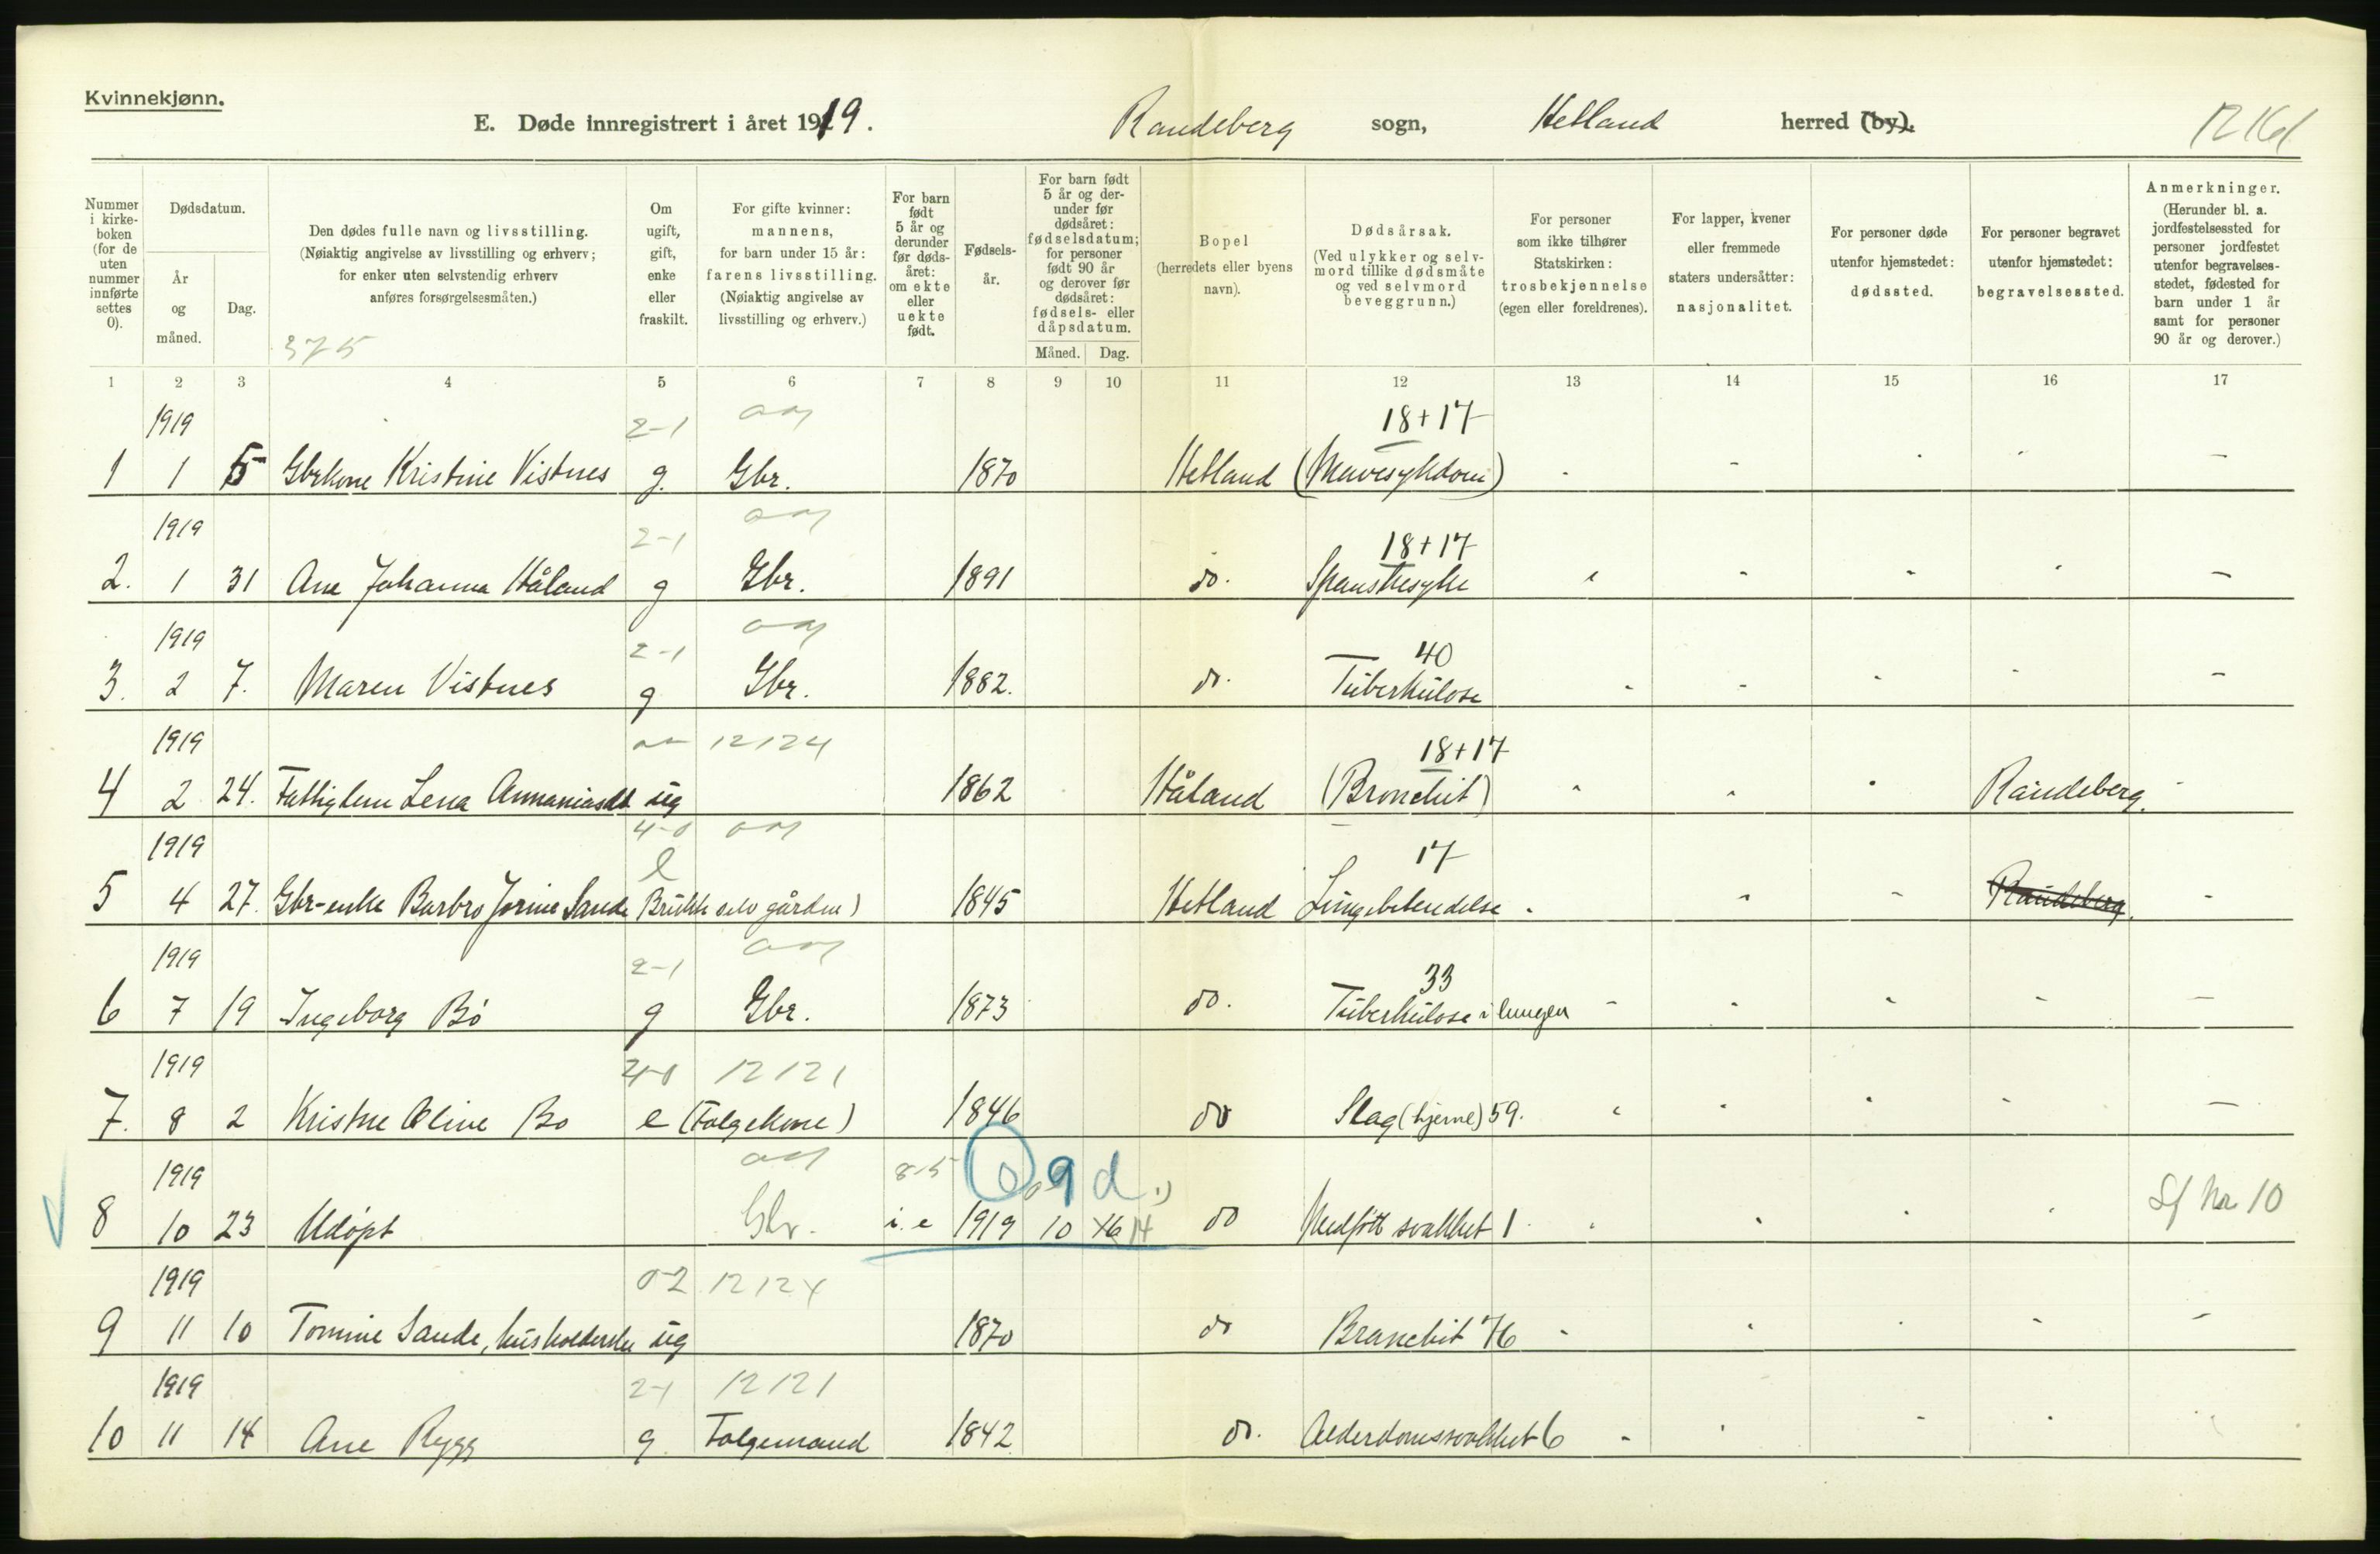 Kvinnekjønn.
E. Døde innregistrert i året 1919. Randeberg sogn, Hetland herred (by).
Nummer i kirkeboken (for de uten nummer innførte settes 0).
Dødsdatum.
År og måned.
Dag.
Den dødes fulle navn og livsstilling.
(Nøiaktig angivelse av livsstilling og erhverv;
for enker uten selvstendig erhverv
anføres forsørgelsesmåten.)
375
Om ugift, gift, enke eller fraskilt.
For gifte kvinner:
mannens,
for barn under 15 år:
farens livsstilling.
(Nøiaktig angivelse av
livsstilling og erhverv.)
For barn født 5 år og derunder før dødsåret: om ekte eller uekte født.
Fødselsår.
For barn født 5 år og derunder før dødsåret: fødselsdatum; for personer født 90 år og derover før dødsåret: fødsels- eller dåpsdatum.
Måned. Dag.
Bopel
(herredets eller byens
navn).
Dødsårsak.
(Ved ulykker og selvmord tillike dødsmåte og ved selvmord beveggrunn.)
For personer
som ikke tilhører
Statskirken:
trosbekjennelse
(egen eller foreldrenes).
For lapper, kvener
eller fremmede
staters undersåtter:
nasjonalitet.
For personer døde
utenfor hjemstedet:
dødssted.
For personer begravet
utenfor hjemstedet:
begravelsessted.
Anmerkninger.
(Herunder bl. a.
jordfestelsessted for
personer jordfestet
utenfor begravelses-
stedet, fødested for
barn under 1 år
samt for personer
90 år og derover.)
1 2 3 4 5 6 7 8 9 10 11 12 13 14 15 16 17
1919 2-1 18+17
1 1 5 Gbrkone Kristine Vistnes g. Gbr. 1870 Hetland (Mavesykdom) - - - - -
1919 2-1 18+17
2. 1 31 Ane Johanna Håland g Gbr. 1891 do. Spanskesyke - - - - -
1919 2-1 40
3. 2 7. Maren Vistnes g Gbr. 1882. do. Tuberkulose - - - - -
1919 12124 18+17
4 2 24. Fattiglem Lena Annaniasdt ug 1862 Håland (Bronchit) - - - Randeberg.
1919 4-0 e 17
5 4 27. Gbr-enke Barbro Jorine Sande Brukte selv gården) 1845 Hetland Lungebetendelse - - - Randeberg. -
1919 2-1 33
6 7 19 Ingeborg Bö g Gbr. 1873 do. Tuberkulose i lungen - - - - -
1919 4-0 12121
7. 8 2 Kristne Oline Bo e (Folgekone) 1846 do Slag (hjerne) 59. - - - - -
1919 8-5 0 9 d 1)
8 10 23 Udøpt Gbr. i. e 1919 10 16 14 do Medfött svakhet 1 - - - - Sf Nr 10
1919 0-2 12124
9 11 10 Tomine Sande, husholderske ug 1870 do Bronchit 76 - - - - -
1919 2-1 12121
10 11 14 Ane Rygg g. Folgemand 1842 do. Alderdomssvakhet 6 - - - -